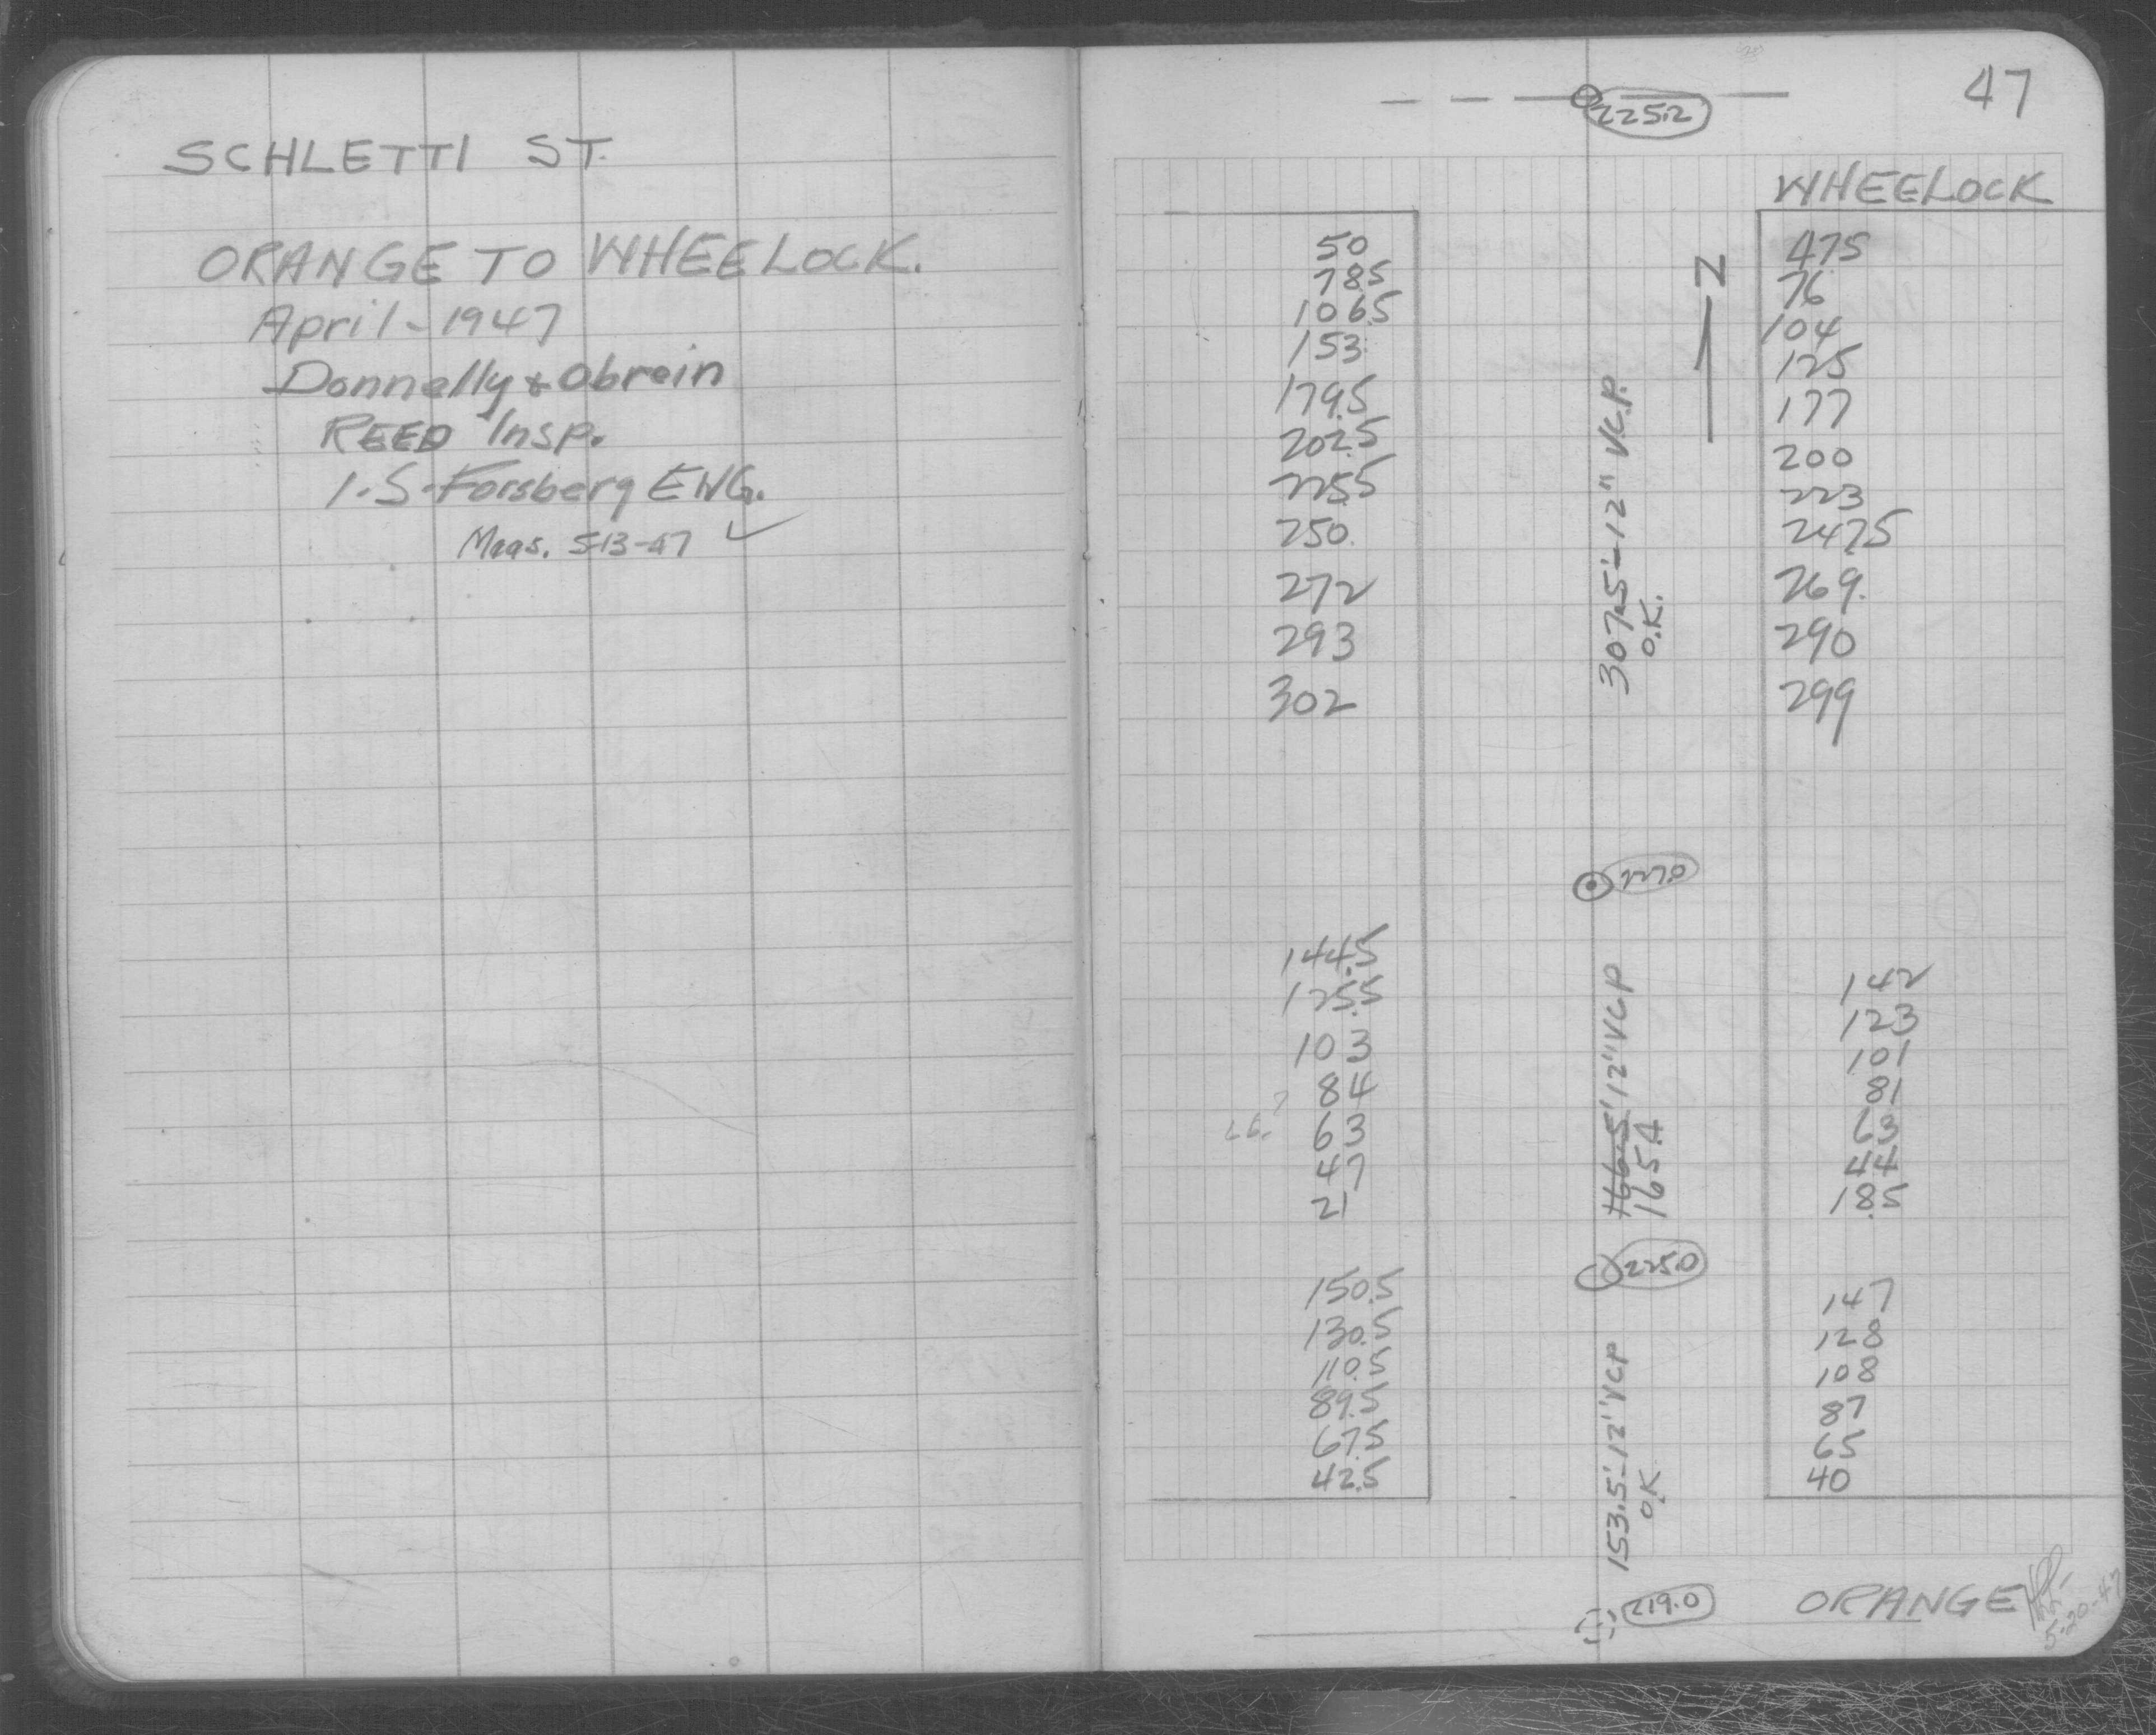 SCHLETTI ST.
ORANGE TO WHEELOCK.
April - 1947
Donnelly & Obrein
REED Insp.
I.S. Forsberg ENG.
Meas. 5-13-47 ✓
47
225.2
WHEELOCK
50
78.5
106.5
153
179.5
202.5
225.5
250.
272
293
302
N
307.5'-12" V.C.P.
O.K.
47.5
76
104
125
177
200
223
247.5
269.
290
299
227.0
144.5
125.5
103
84
63
47
21
166.5' 12" VCP
165.4
142
123
101
81
63
44
18.5
225.0
150.5
130.5
110.5
89.5
67.5
42.5
153.5'-12" VCP
O.K
147
128
108
87
65
40
219.0
ORANGE
5-20-47